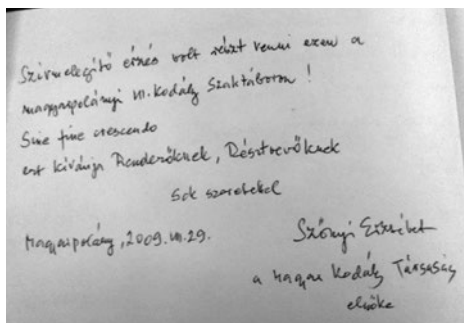 Szívmelegítő érzés volt részt venni ezen a
magyarpolányi VI. Kodály Szaktáboron!
Sine fine crescendo
ezt kívánja Rendezőknek, Résztvevőknek
Sok szeretettel
Magyarpolány, 2009.VII.29.
Szőnyi Erzsébet
a Magyar Kodály Társaság
elnöke